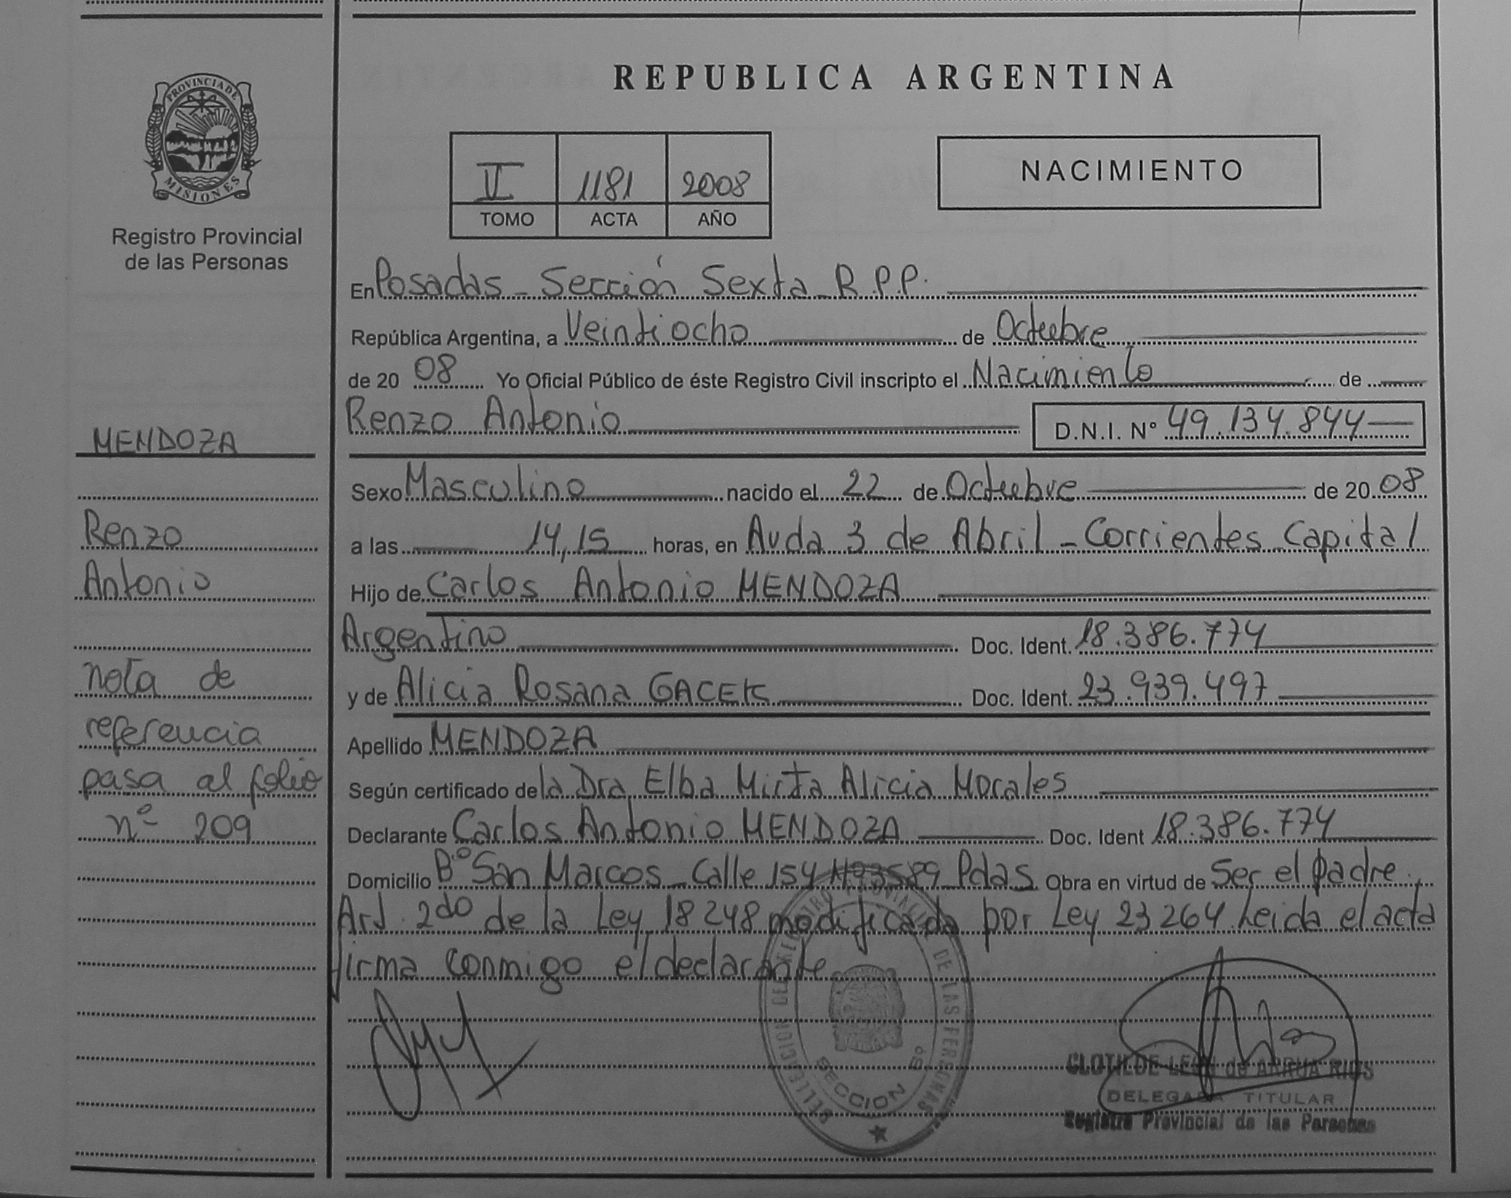 PROVINCIA DE
MISIONES
Registro Provincial
de las Personas
MENDOZA
Renzo
Antonio
nota de
referencia
pasa al folio
nº 209
REPUBLICA ARGENTINA
1181 2008
TOMO ACTA AÑO
NACIMIENTO
En Posadas - Sección Sexta R.P.P.
República Argentina, a Veintiocho de Octubre
de 20 08 Yo Oficial Público de éste Registro Civil inscripto el Nacimiento de
Renzo Antonio D.N.I. Nº 49.134.844
Sexo Masculino nacido el 22 de Octubre de 20 08
a las 14,15 horas, en Avda 3 de Abril - Corrientes Capital
Hijo de Carlos Antonio MENDOZA
Argentino Doc. Ident. 18.386.774
y de Alicia Rosana GACEK Doc. Ident. 23.939.497
Apellido MENDOZA
Según certificado de la Dra Elba Mirta Alicia Morales
Declarante Carlos Antonio MENDOZA Doc. Ident 18.386.774
Domicilio Bº San Marcos - Calle 154 Nº3589 Pdas Obra en virtud de Ser el padre
Art. 2do de la Ley 18248 modificada por Ley 23264 Leida el acta
firma conmigo el declarante
DELEGACION DEL REGISTRO PROVINCIAL DE LAS PERSONAS
SECCION 6º
CLOTILDE LEON de ARRUA RIOS
DELEGADA TITULAR
Registro Provincial de las Personas